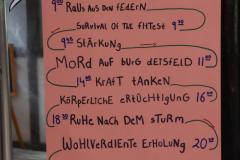 9⁰⁰ RAUS AUS DEN FEDERN
SURVIVAL OF THE FITTEST 9³⁰
9⁴⁵ STÄRKUNG
MORD AUF BURG DEISFELD 11⁰⁰
14⁰⁰ KRAFT TANKEN
KÖRPERLICHE ERTÜCHTIGUNG 16⁰⁰
18³⁰ RUHE NACH DEM STURM
WOHLVERDIENTE ERHOLUNG 20⁰⁰